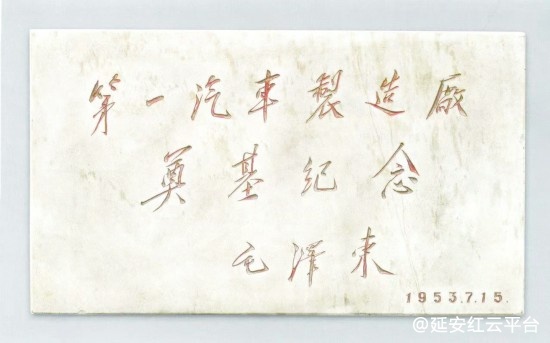 第一汽車製造廠
奠基纪念
毛澤东
1953.7.15.
@延安红云平台